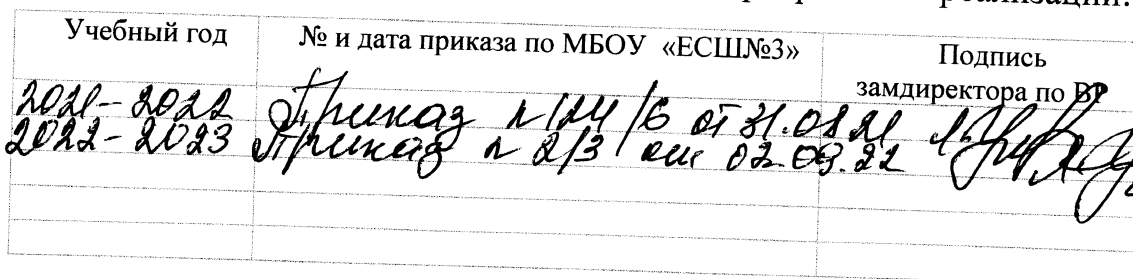 реализации.
Учебный год № и дата приказа по МБОУ «ЕСШ№3» Подпись замдиректора по ВР
2021-2022 Приказ №124/6 от 31.08.21
2022-2023 Приказ № 213 от 02.09.22